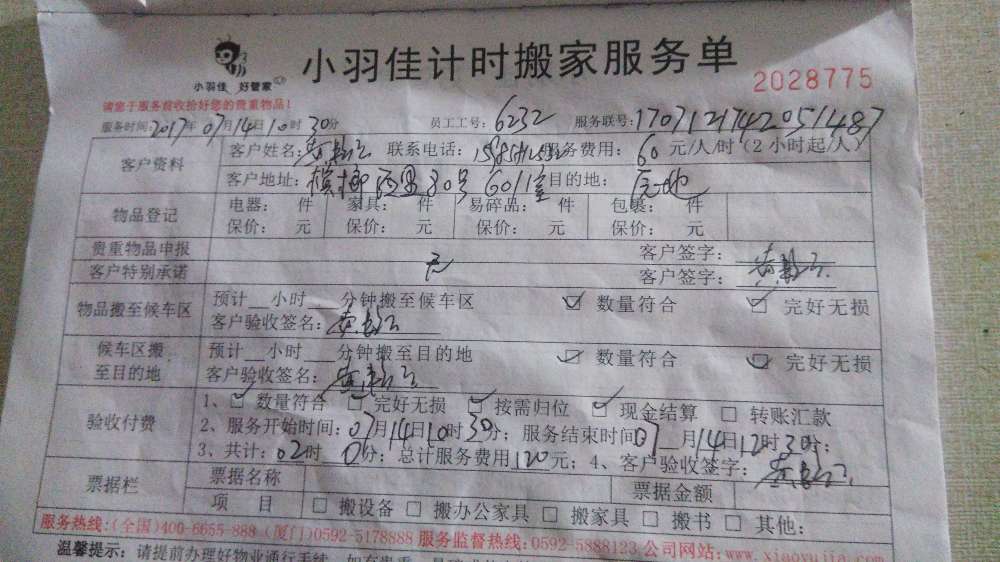 小羽佳 好管家
小羽佳计时搬家服务单
2028775
请您于服务前收拾好您的贵重物品!
服务时间:2017年07月14日10时30分 员工工号:6232 服务联号:1707121742051487
客户资料
客户姓名: 联系电话: 服务费用:60元/人/时(2小时起/人)
客户地址: 80号601室 目的地:
物品登记
电器: 件 家具: 件 易碎品: 件 包裹: 件
保价: 元 保价: 元 保价: 元 保价: 元
贵重物品申报 客户签字:
客户特别承诺 无 客户签字:
物品搬至候车区
预计__小时___分钟搬至候车区 数量符合 完好无损
客户验收签名:
候车区搬
至目的地
预计__小时___分钟搬至目的地 数量符合 完好无损
客户验收签名:
验收付费
1、 数量符合 完好无损 按需归位 现金结算 转账汇款
2、服务开始时间:07月14日10时30分; 服务结束时间07月14日12时30分;
3、共计:02时0分; 总计服务费用120元; 4、客户验收签字:
票据栏
票据名称 票据金额
项 目 搬设备 搬办公家具 搬家具 搬书 其他:
服务热线:(全国)400-6655-888 (厦门)0592-5178888 服务监督热线:0592-5888123 公司网站:www.xiaoyujia.com
温馨提示: 请提前办理好物业通行手续,